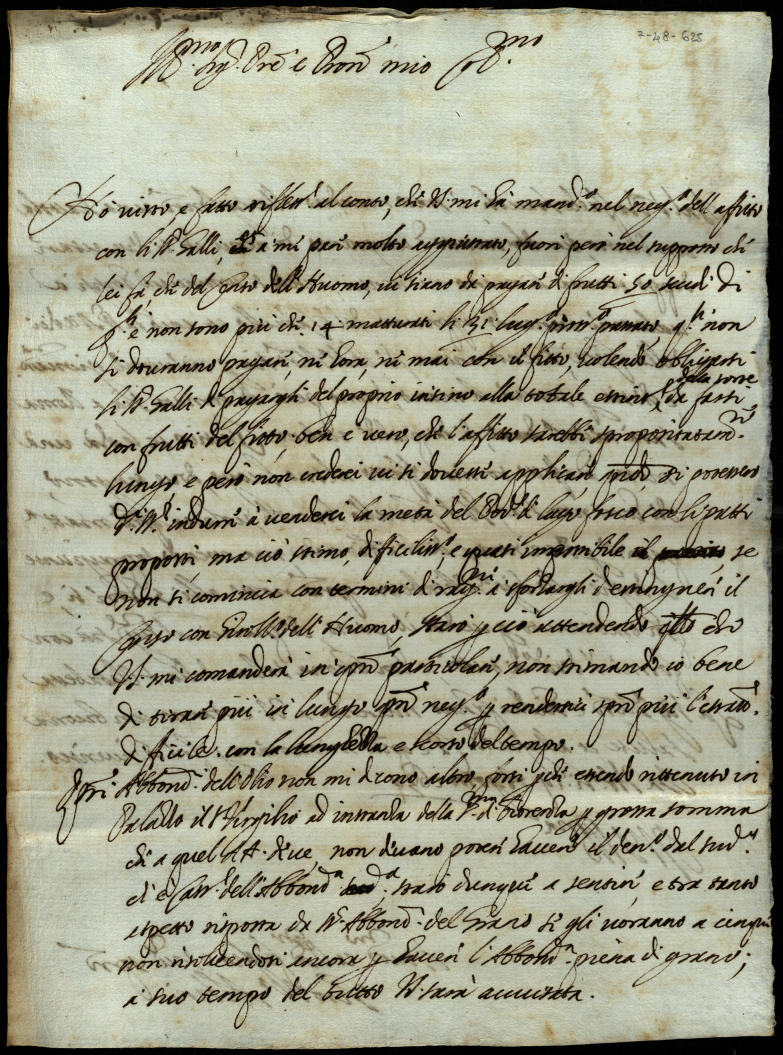 7-48-625
Ill.mo Sig.r Pre e Pron mio Col.mo
Hò visto, e fatto refless.e al conto, che V.S. mi hà mand.o nel neg.o dell affitto
con li SS.ri Galli, che a mè pare molto aggiustato, fuori però nel supposto che
lei fà, che del Censo dell'Huomo, vi siano da pagare di frutti 50 scudi di
q.li e non sono più che 14 matturati li 31 lug.o pross.o passato q.li non
si dovranno pagare, ne hora, ne mai con il fitto, volendo obligarsi
li SS.ri Galli di pagargli del proprio insino alla totale estint.e della sorte da farsi
con frutti del fitto, ben è vero, che l'affitto sarebbe spropositatam.te
lungo, e però non crederei vi si dovesse applicare quando si potessero
d.i SS.ri indurre à vendere la metà del Pod.e di lago fosco con li patti
proposti, ma ciò stimo, dificiliss.o, e quasi impossibile se
non si comincia con termini di rag.ne à sforzargli d'estinguere il
Censo con dell'Huomo, starò p ciò attendendo q.llo che
V.S. mi comanderà in q.sto particolare, non stimando io bene
di tirare più in lungo q.sto neg.o p rendersi sp.re più l'estratt.e
dificile con la lunghezza e corso del tempo.
Abbond.a dell'Olio non mi dicono altro, forsi p che essendo rittenuto in
Palazzo il Virgilio ad instanza della di Fiorenza p grossa somma
che a quel A. deve, non devano potere havere il den.o dal sud.o
ch'è Cass.e dell'Abbond.a starò dunque a sentire, e tra tanto
aspetto risposta da SS.ri Abbond.a del Grano se gli vorranno a cinque
non risolvendosi ancora p havere l'Abbond.a piena di grano;
à suo tempo del tutto V.S. sarà avvisata.